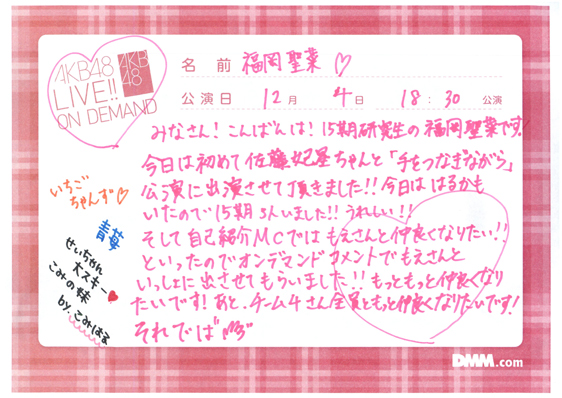 AKB48
LIVE!!
ON DEMAND
AKB
48
名 前 福岡聖菜 ♡
公演日 12月 4日 18:30 公演
みなさん!こんばんは!15期研究生の福岡聖菜です!
今日は初めて佐藤妃星ちゃんと「手をつなぎながら」
公演に出演させて頂きました!!今日ははるかも
いたので15期 3人いました!!うれしい!!
そして自己紹介MCではもえさんと仲良くなりたい!!
といったのでオンデマンドコメントでもえさんと
いっしょに出させてもらいました!!もっともっと仲良くなり
たいです!あと、チーム4さん全員ともっと仲良くなりたいです!
それでは
いちご
ちゃんず♡
青苺
せいちゃん
大スキー
こみの妹
by.こみはる
DMM.com